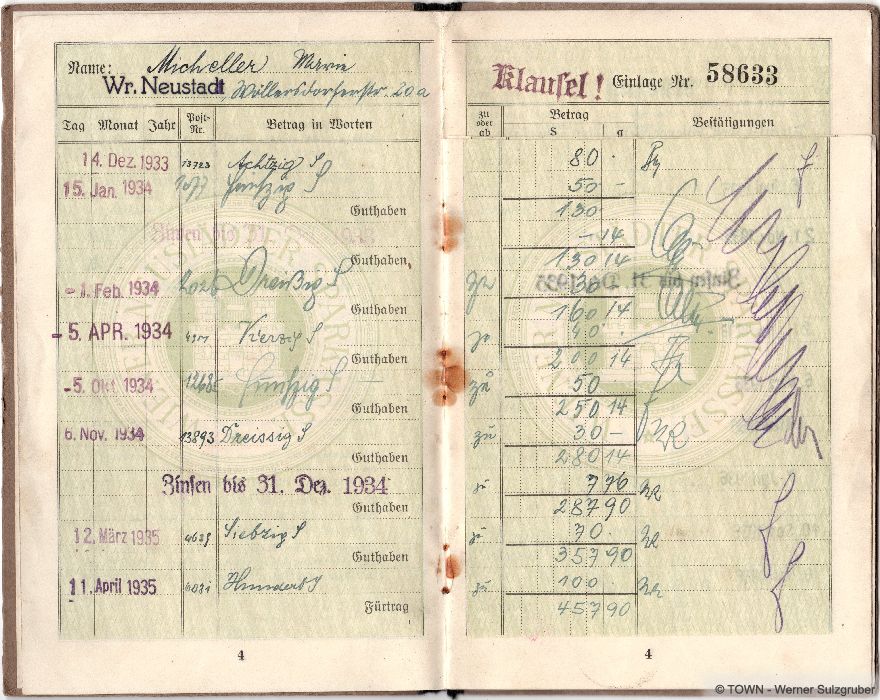 Name: Micheller Marie
Wr. Neustadt, Wöllersdorferstr. 20a
Klausel! Einlage Nr. 58633
Tag Monat Jahr Post-Nr. Betrag in Worten
zu oder ab Betrag S g Bestätigungen
14. Dez. 1933 13723 Achtzig S 80 .
15. Jan. 1934 1077 Fünfzig S 50 -
Guthaben 130
Zinsen bis 31. Dez. 1933 - 14
Guthaben 130 14
- 1. Feb. 1934 2026 Dreißig S zu 30
Guthaben 160 14
- 5. APR. 1934 Vierzig S zu 40 .
Guthaben 200 14
- 5. Okt. 1934 12685 Fünfzig S zu 50
Guthaben 250 14
6. Nov. 1934 13893 Dreissig S zu 30 -
Guthaben 280 14
Zinsen bis 31. Dez. 1934 zu 7 76
Guthaben 287 90
12. März 1935 4689 Siebzig S zu 70 .
Guthaben 357 90
11. April 1935 6081 Hundert S zu 100 .
Fürtrag 457 90
4
4
© TOWN - Werner Sulzgruber